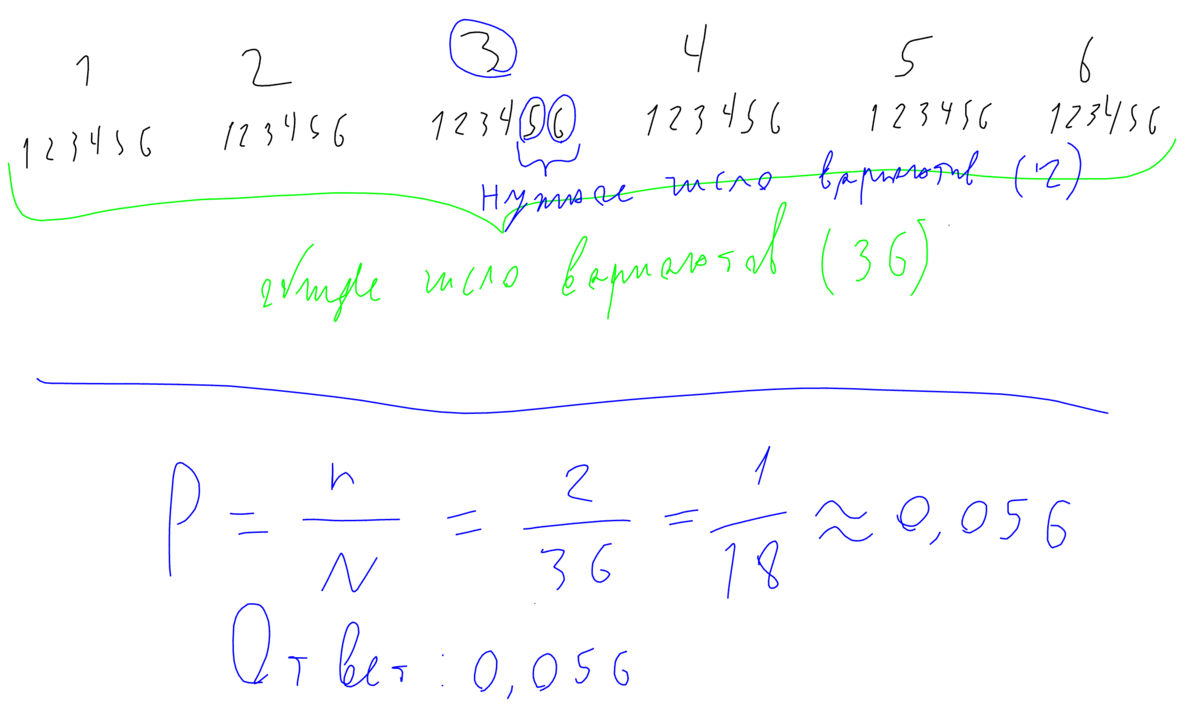 1 2 3 4 5 6
1 2 3 4 5 6 1 2 3 4 5 6 1 2 3 4 5 6 1 2 3 4 5 6 1 2 3 4 5 6 1 2 3 4 5 6
Нужное число вариантов (2)
общее число вариантов (36)
P = n/N = 2/36 = 1/18 ≈ 0,056
Ответ: 0,056